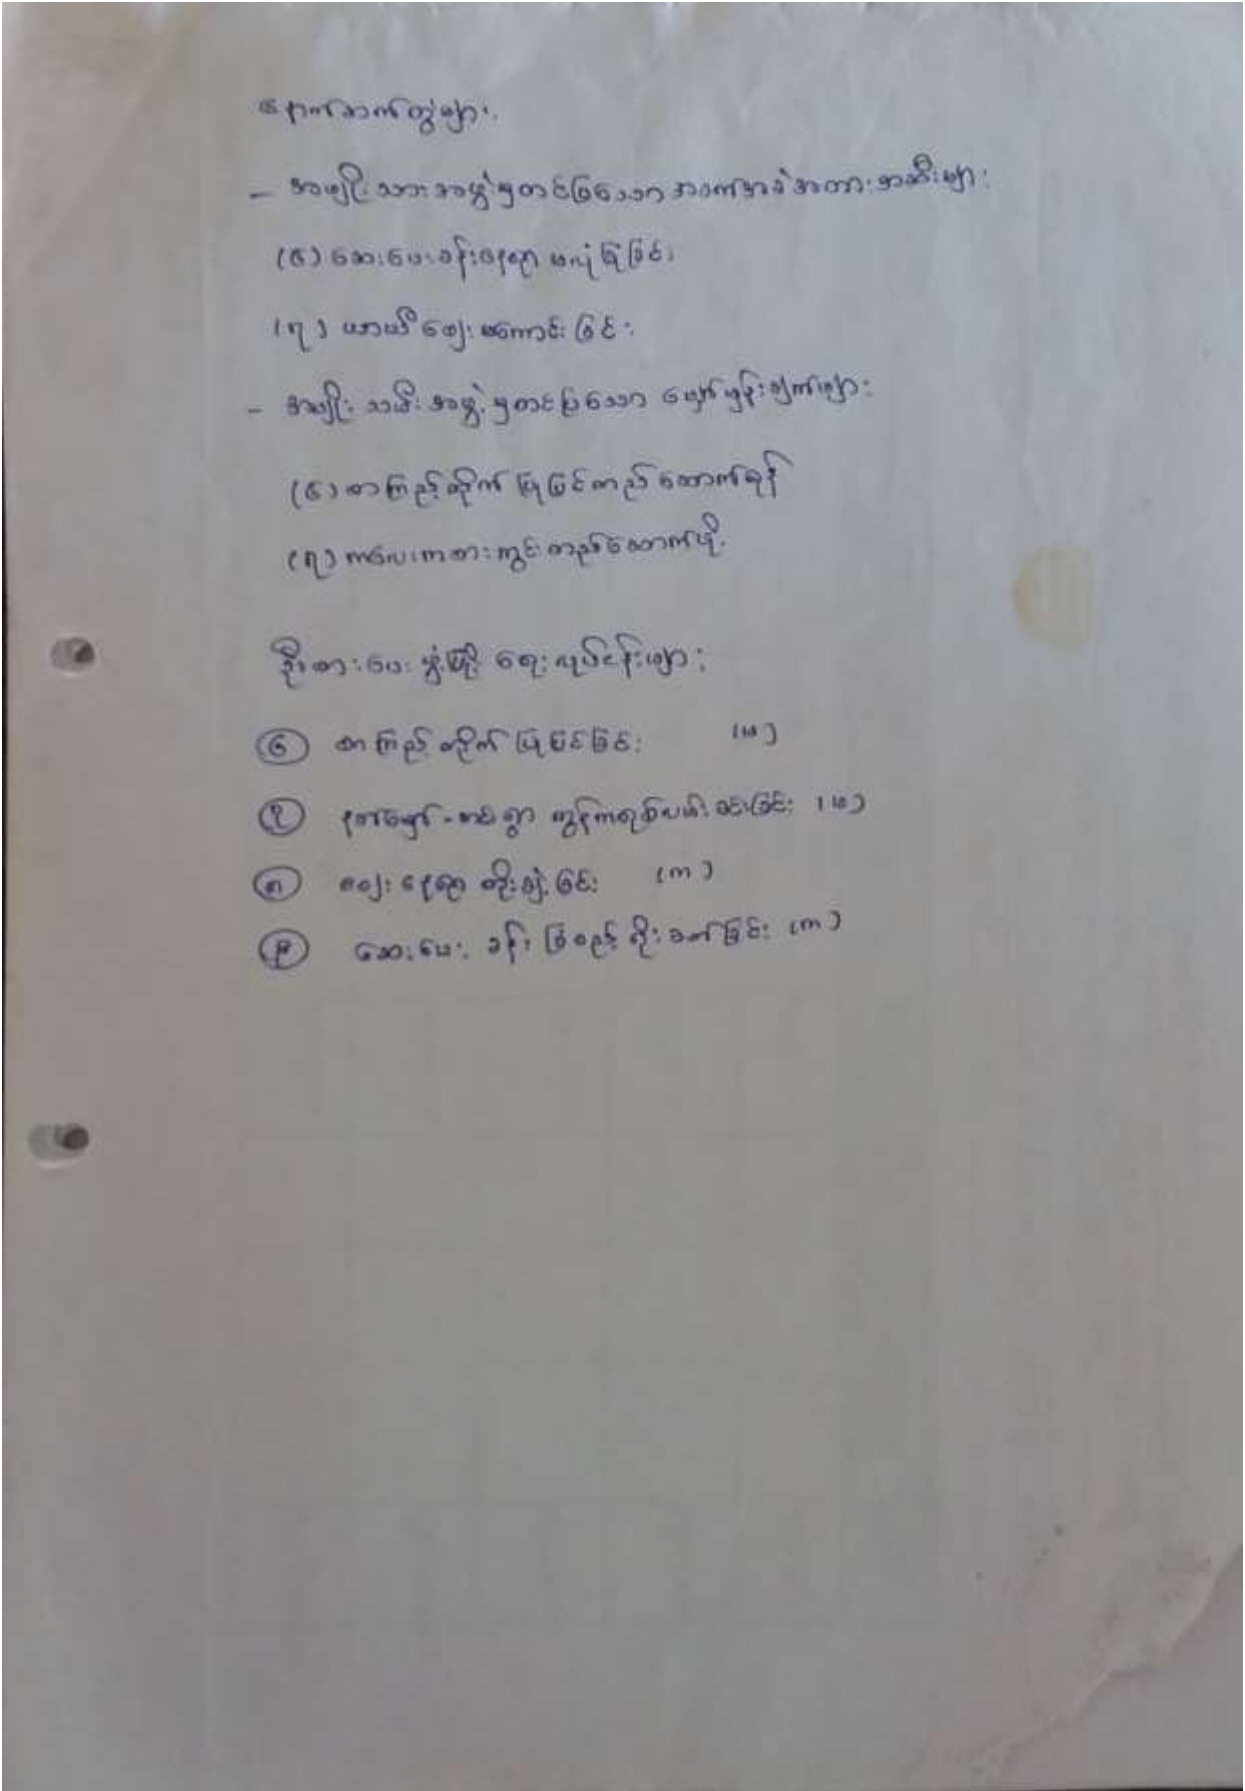 နောက်ဆက်တွဲများ
- အမျိုးသားအဖွဲ့မှတင်ပြသော အခက်အခဲအတားအဆီးများ
(၆) ဆေးပေးခန်းနေရာ မလုံခြုံခြင်း
(၇) ယာယီ ဈေး မကောင်းခြင်း
- အမျိုးသမီးအဖွဲ့မှတင်ပြသော မျှော်မှန်းချက်များ
(၆) စာကြည့်တိုက် ပြုပြင်တည်ဆောက်ရန်
(၇) ကလေးကစားကွင်းတည်ဆောက်ဖို့
ဦးစားပေး ဖွံ့ဖြိုးရေး လုပ်ငန်းများ
၆ စာကြည့်တိုက် ပြုပြင်ခြင်း (မ)
၇ ကွန်ကရစ်လမ်းခင်းခြင်း (မ)
၈ ဈေး နေရာ တိုးချဲ့ခြင်း (က)
၉ ဆေးပေးခန်း ခြံစည်းရိုးခတ်ခြင်း (က)